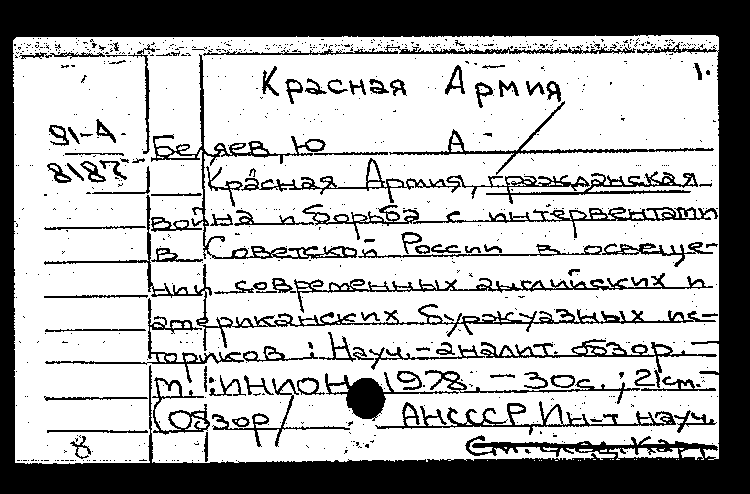 Красная Армия
1.
91-А
8187
Беляев, Ю А
Красная Армия, гражданская
война и борьба с интервентами
в Советской России в освеще-
нии современных английских и
американских буржуазных ис-
ториков : Науч.-аналит. обзор. —
М. : ИНИОН 1978. — 30с. ; 21см. —
(Обзор/ АНСССР, Ин-т науч.
8 См. след. карт.